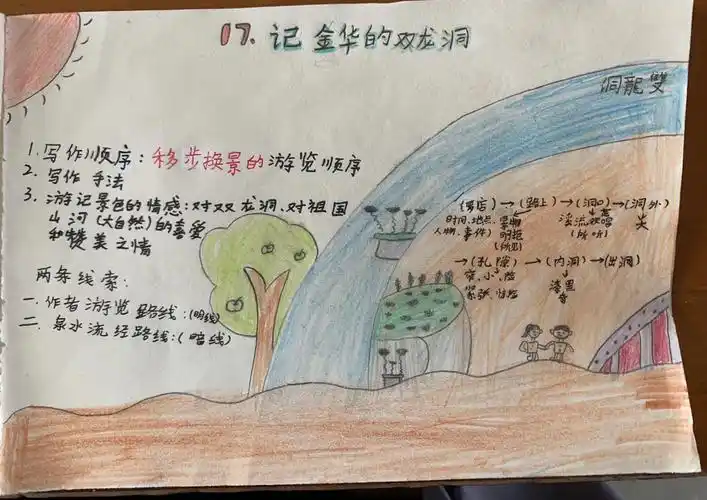 17. 记金华的双龙洞
洞龍雙
1. 写作顺序：移步换景的游览顺序
2. 写作 手法
3. 游记景色的情感：对双龙洞、对祖国
山河（大自然）的喜爱
和赞美之情
两条线索：
一. 作者游览路线：（明线）
二. 泉水流经路线：（暗线）
→（路上）→（洞口）→（洞外）
时间、地点、景物
人物、事件）明艳
→（孔隙）→（内洞）→（出洞）
窄、小、险
漆黑
奇